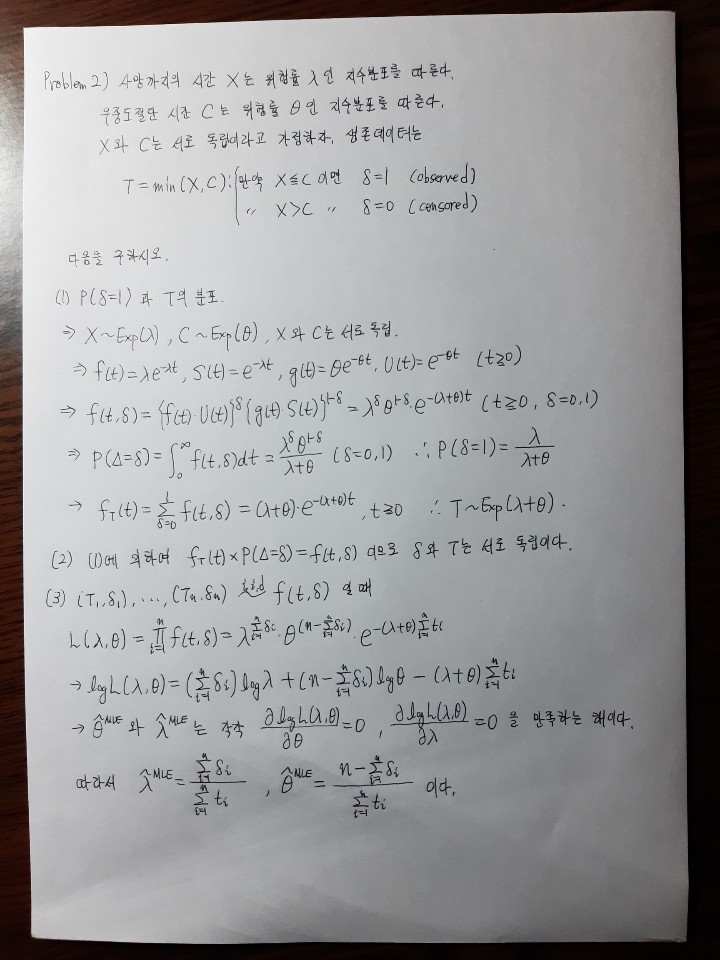 Problem 2) 사망까지의 시간 X는 위험률 λ인 지수분포를 따른다.
우중도절단 시간 C는 위험률 θ인 지수분포를 따른다.
X와 C는 서로 독립이라고 가정하자. 생존데이터는
T = min(X, C) : { 만약 X≤C 이면 δ=1 (observed)
〃 X>C 〃 δ=0 (censored)
다음을 구하시오.
(1) P(δ=1) 과 T의 분포.
⇒ X~Exp(λ), C~Exp(θ), X와 C는 서로 독립.
⇒ f(t)=λe^{-λt}, S(t)=e^{-λt}, g(t)=θe^{-θt}, U(t)=e^{-θt} (t≥0)
⇒ f(t,δ) = {f(t)·U(t)}^δ {g(t)·S(t)}^{1-δ} = λ^δ θ^{1-δ}·e^{-(λ+θ)t} (t≥0, δ=0,1)
⇒ P(Δ=δ) = ∫_0^∞ f(t,δ)dt = λ^δ θ^{1-δ}/(λ+θ) (δ=0,1) ∴ P(δ=1) = λ/(λ+θ)
→ f_T(t) = Σ_{δ=0}^{1} f(t,δ) = (λ+θ)·e^{-(λ+θ)t}, t≥0 ∴ T~Exp(λ+θ).
(2) (1)에 의하여 f_T(t)×P(Δ=δ) = f(t,δ) 이므로 δ와 T는 서로 독립이다.
(3) (T₁,δ₁), ..., (Tₙ,δₙ) i.i.d ~ f(t,δ) 일 때
L(λ,θ) = Π_{i=1}^{n} f(t,δ) = λ^{Σ_{i=1}^{n} δi}·θ^{(n-Σ_{i=1}^{n} δi)}·e^{-(λ+θ)Σ_{i=1}^{n} ti}
→ log L(λ,θ) = (Σ_{i=1}^{n} δi) log λ + (n-Σ_{i=1}^{n} δi) log θ - (λ+θ) Σ_{i=1}^{n} ti
→ θ̂^{MLE} 와 λ̂^{MLE} 는 각각 ∂log L(λ,θ)/∂θ = 0, ∂log L(λ,θ)/∂λ = 0 을 만족하는 해이다.
따라서 λ̂^{MLE} = Σ_{i=1}^{n} δi / Σ_{i=1}^{n} ti , θ̂^{MLE} = (n-Σ_{i=1}^{n} δi) / Σ_{i=1}^{n} ti 이다.